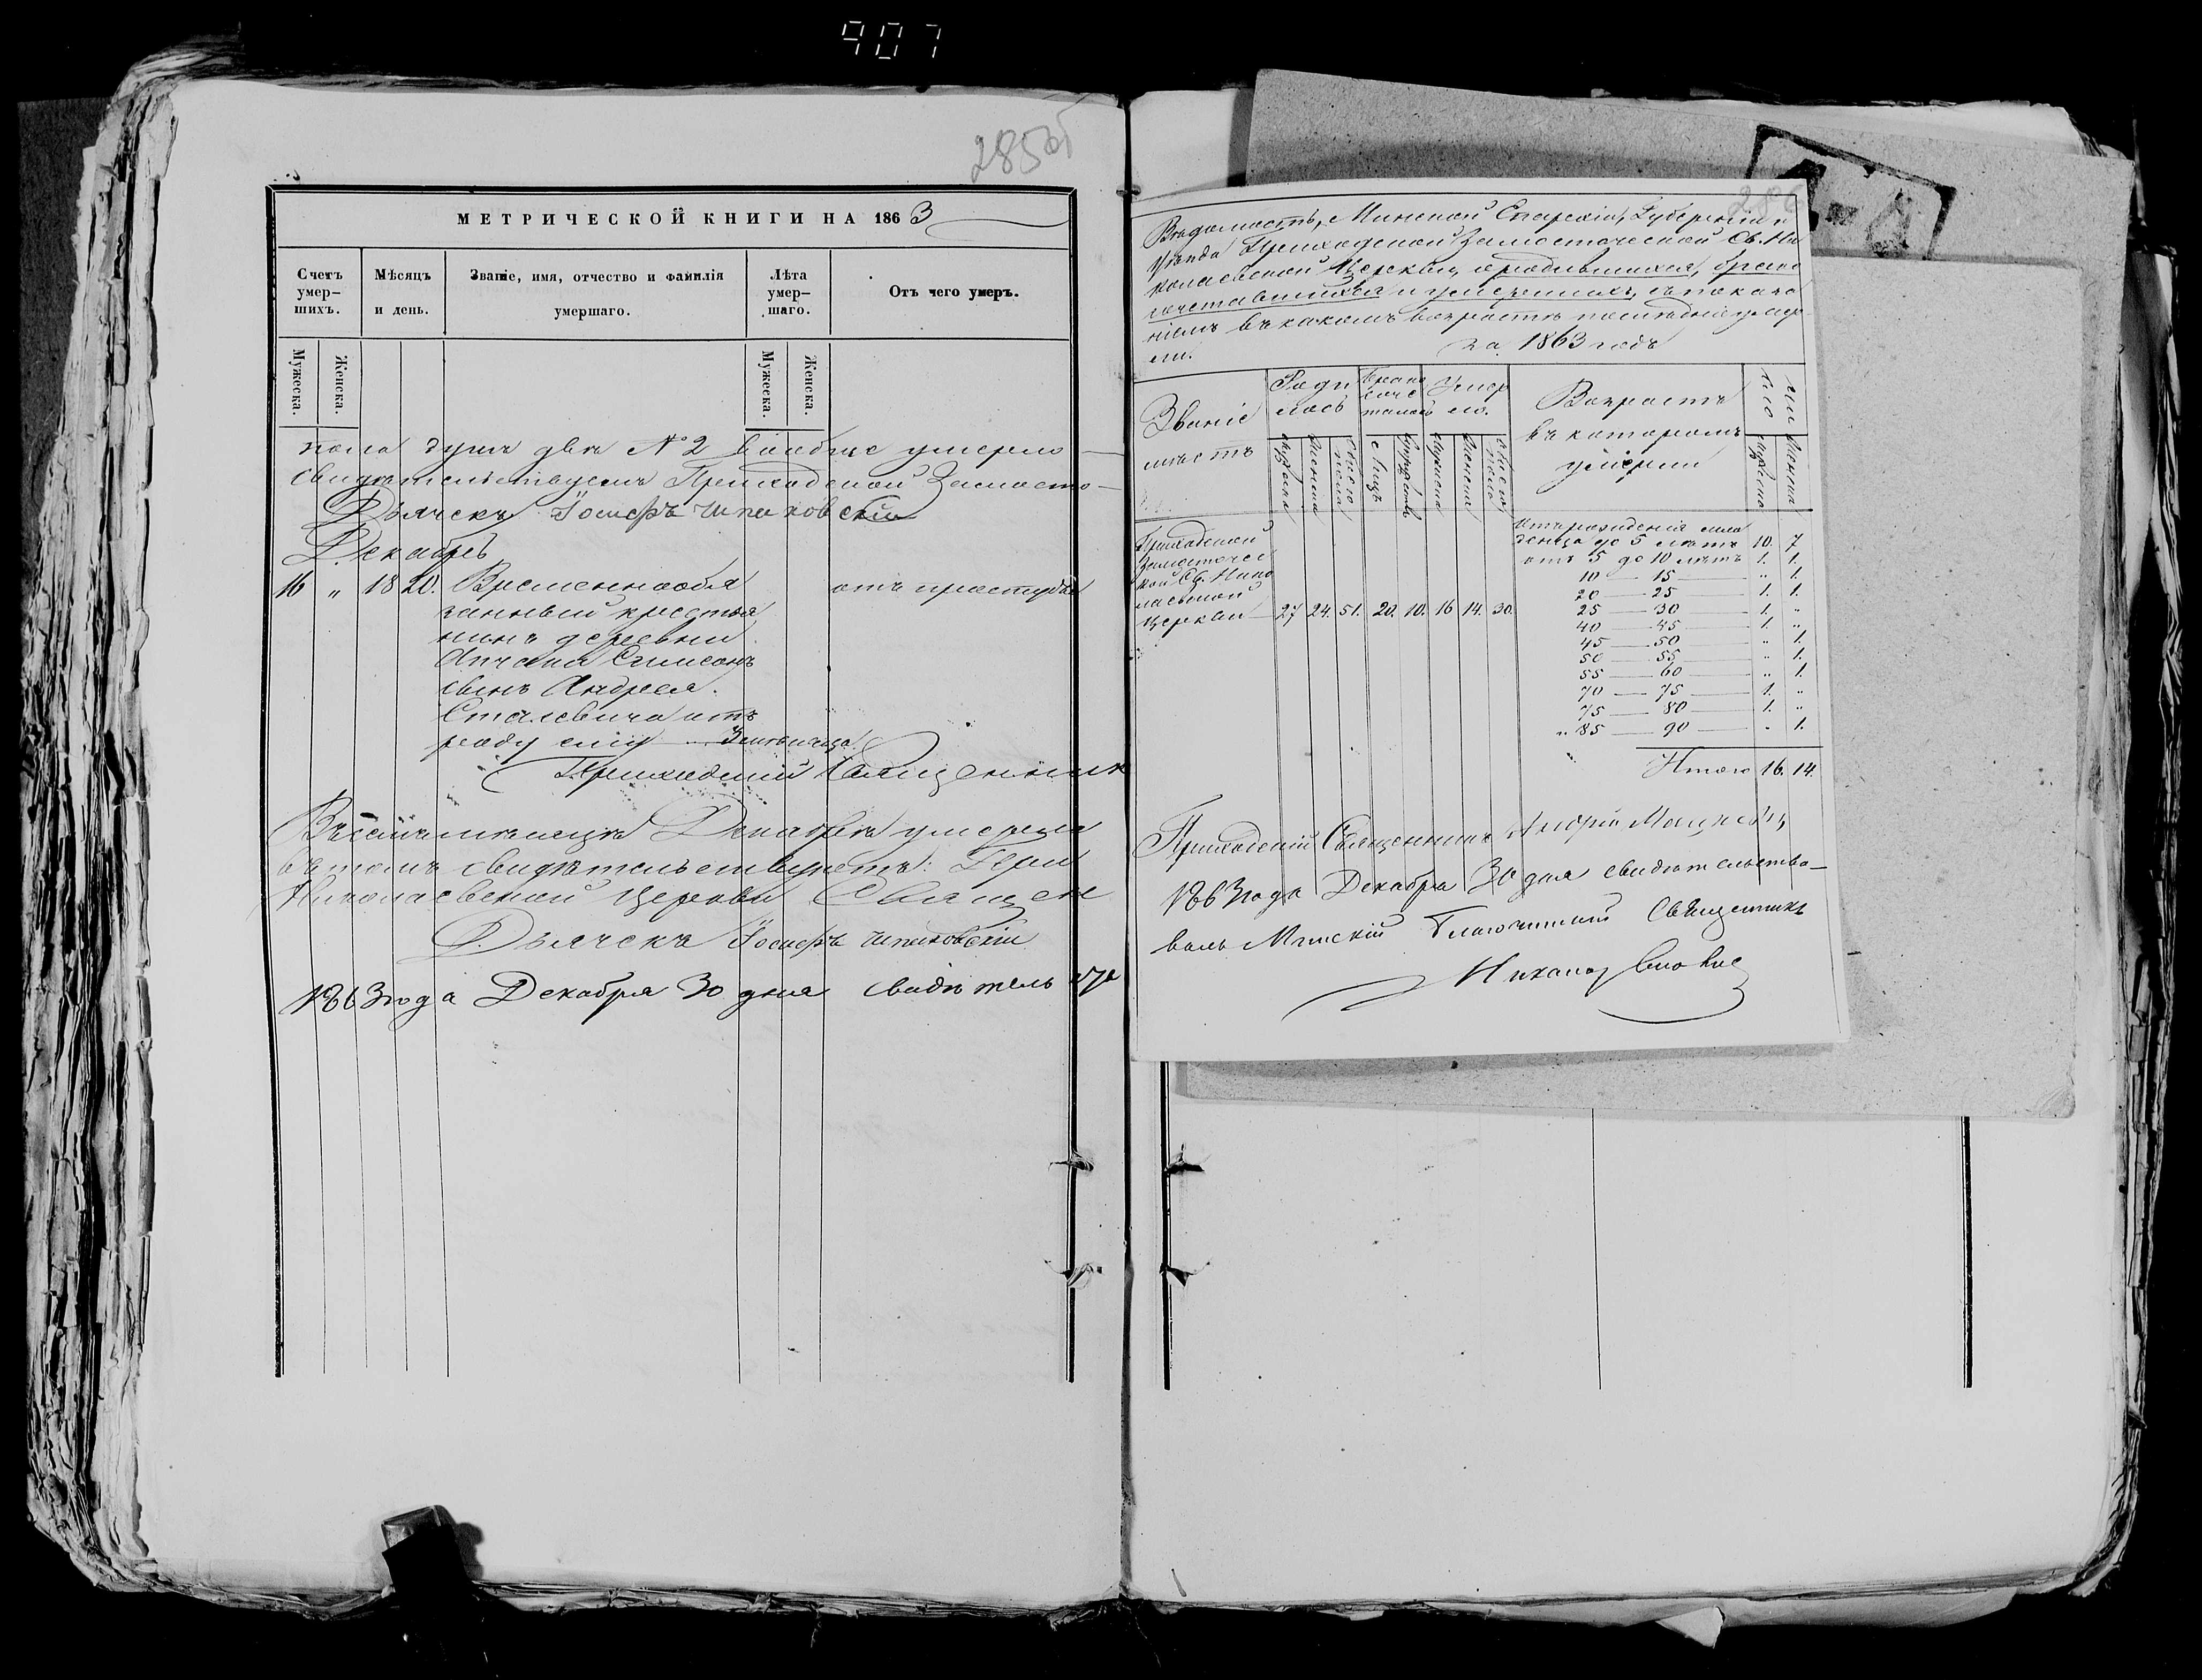 907
285об
МЕТРИЧЕСКОЙ КНИГИ НА 1863
Счетъ умер-шихъ.
Мѣсяцъ и день.
Званіе, имя, отчество и фамилія умершаго.
Лѣта умер-шаго.
Отъ чего умеръ.
Мужеска.
Женска.
Мужеска.
Женска.
пола душъ двѣ №2 вообще умерло
свидѣтельствуемъ Приходской Замосто-
Дьячекъ Іосифъ Шпаковскій
Декабрь
16 " 18 20. Временнообя
занный крестья
нинъ деревни
Симеонъ
сынъ Андрея
отъ
роду ему
отъ простуды
Приходскій Священник
Декабрѣ умерли
въ томъ свидѣтельствуетъ: При
Николаевской Церкви Священ
Дьячекъ Іосифъ Шпаковскій
1863 года Декабря 30 дня свидѣтель
Вѣдомость, Минской Епархіи, Губерніи и
Уѣзда Приходской Замосточеской Св. Ни
колаевской Церкви, о родившихся, брако
сочетавшихся и умершихъ, съ показа
ніемъ въ какомъ возрастѣ послѣдніе умер
ли.
за 1863 годъ
Званіе мѣстъ
Роди лось
Брако соче талось
Умер ло.
Возрастъ въ которомъ умерли
Число
Мужеска
Женска
Обоего пола
Лицъ
Супружествъ
Мужеска
Женска
Обоего пола
Мужеска
Женска
Приходской
Замосточес
кой Св. Нико
лаевской
Церкви 27 24. 51. 20. 10. 16 14. 30.
отъ рожденія мла
денца до 5 лѣтъ 10. 7
отъ 5 до 10 лѣтъ 1. 1.
10 — 15 — " 1.
20 — 25 — 1. 1.
25 — 30 — 1. "
40 — 45 — 1. "
45 — 50 — " 1.
50 — 55 — " 1.
55 — 60 — " 1.
70 — 75 — 1. "
75 — 80 — 1. "
" 85 — 90 — " 1.
Итого 16. 14.
Приходскій Священникъ Андрей
1863 года Декабря 30 дня свидѣтельство-
валъ Минскій Благочинный Священникъ
Никаноръ